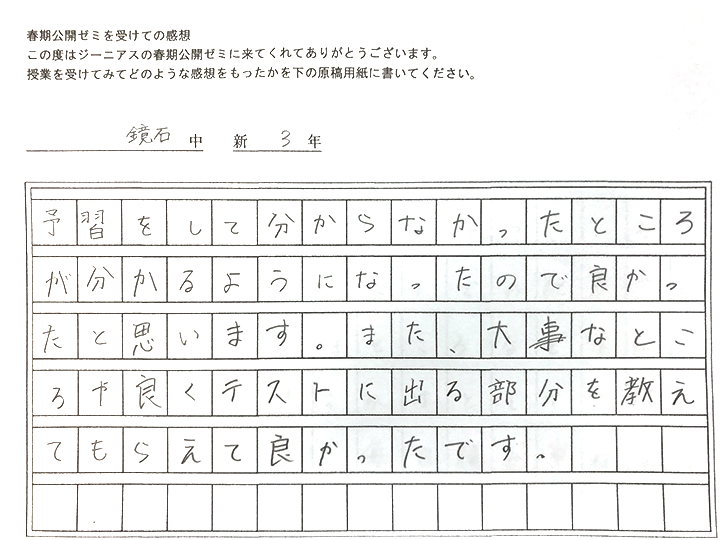 春期公開ゼミを受けての感想
この度はジーニアスの春期公開ゼミに来てくれてありがとうございます。
授業を受けてみてどのような感想をもったかを下の原稿用紙に書いてください。
鏡石 中 新 3 年
予習をして分からなかったところ
が分かるようになったので良かっ
たと思います。また、大事なとこ
ろや良くテストに出る部分を教え
てもらえて良かったです。